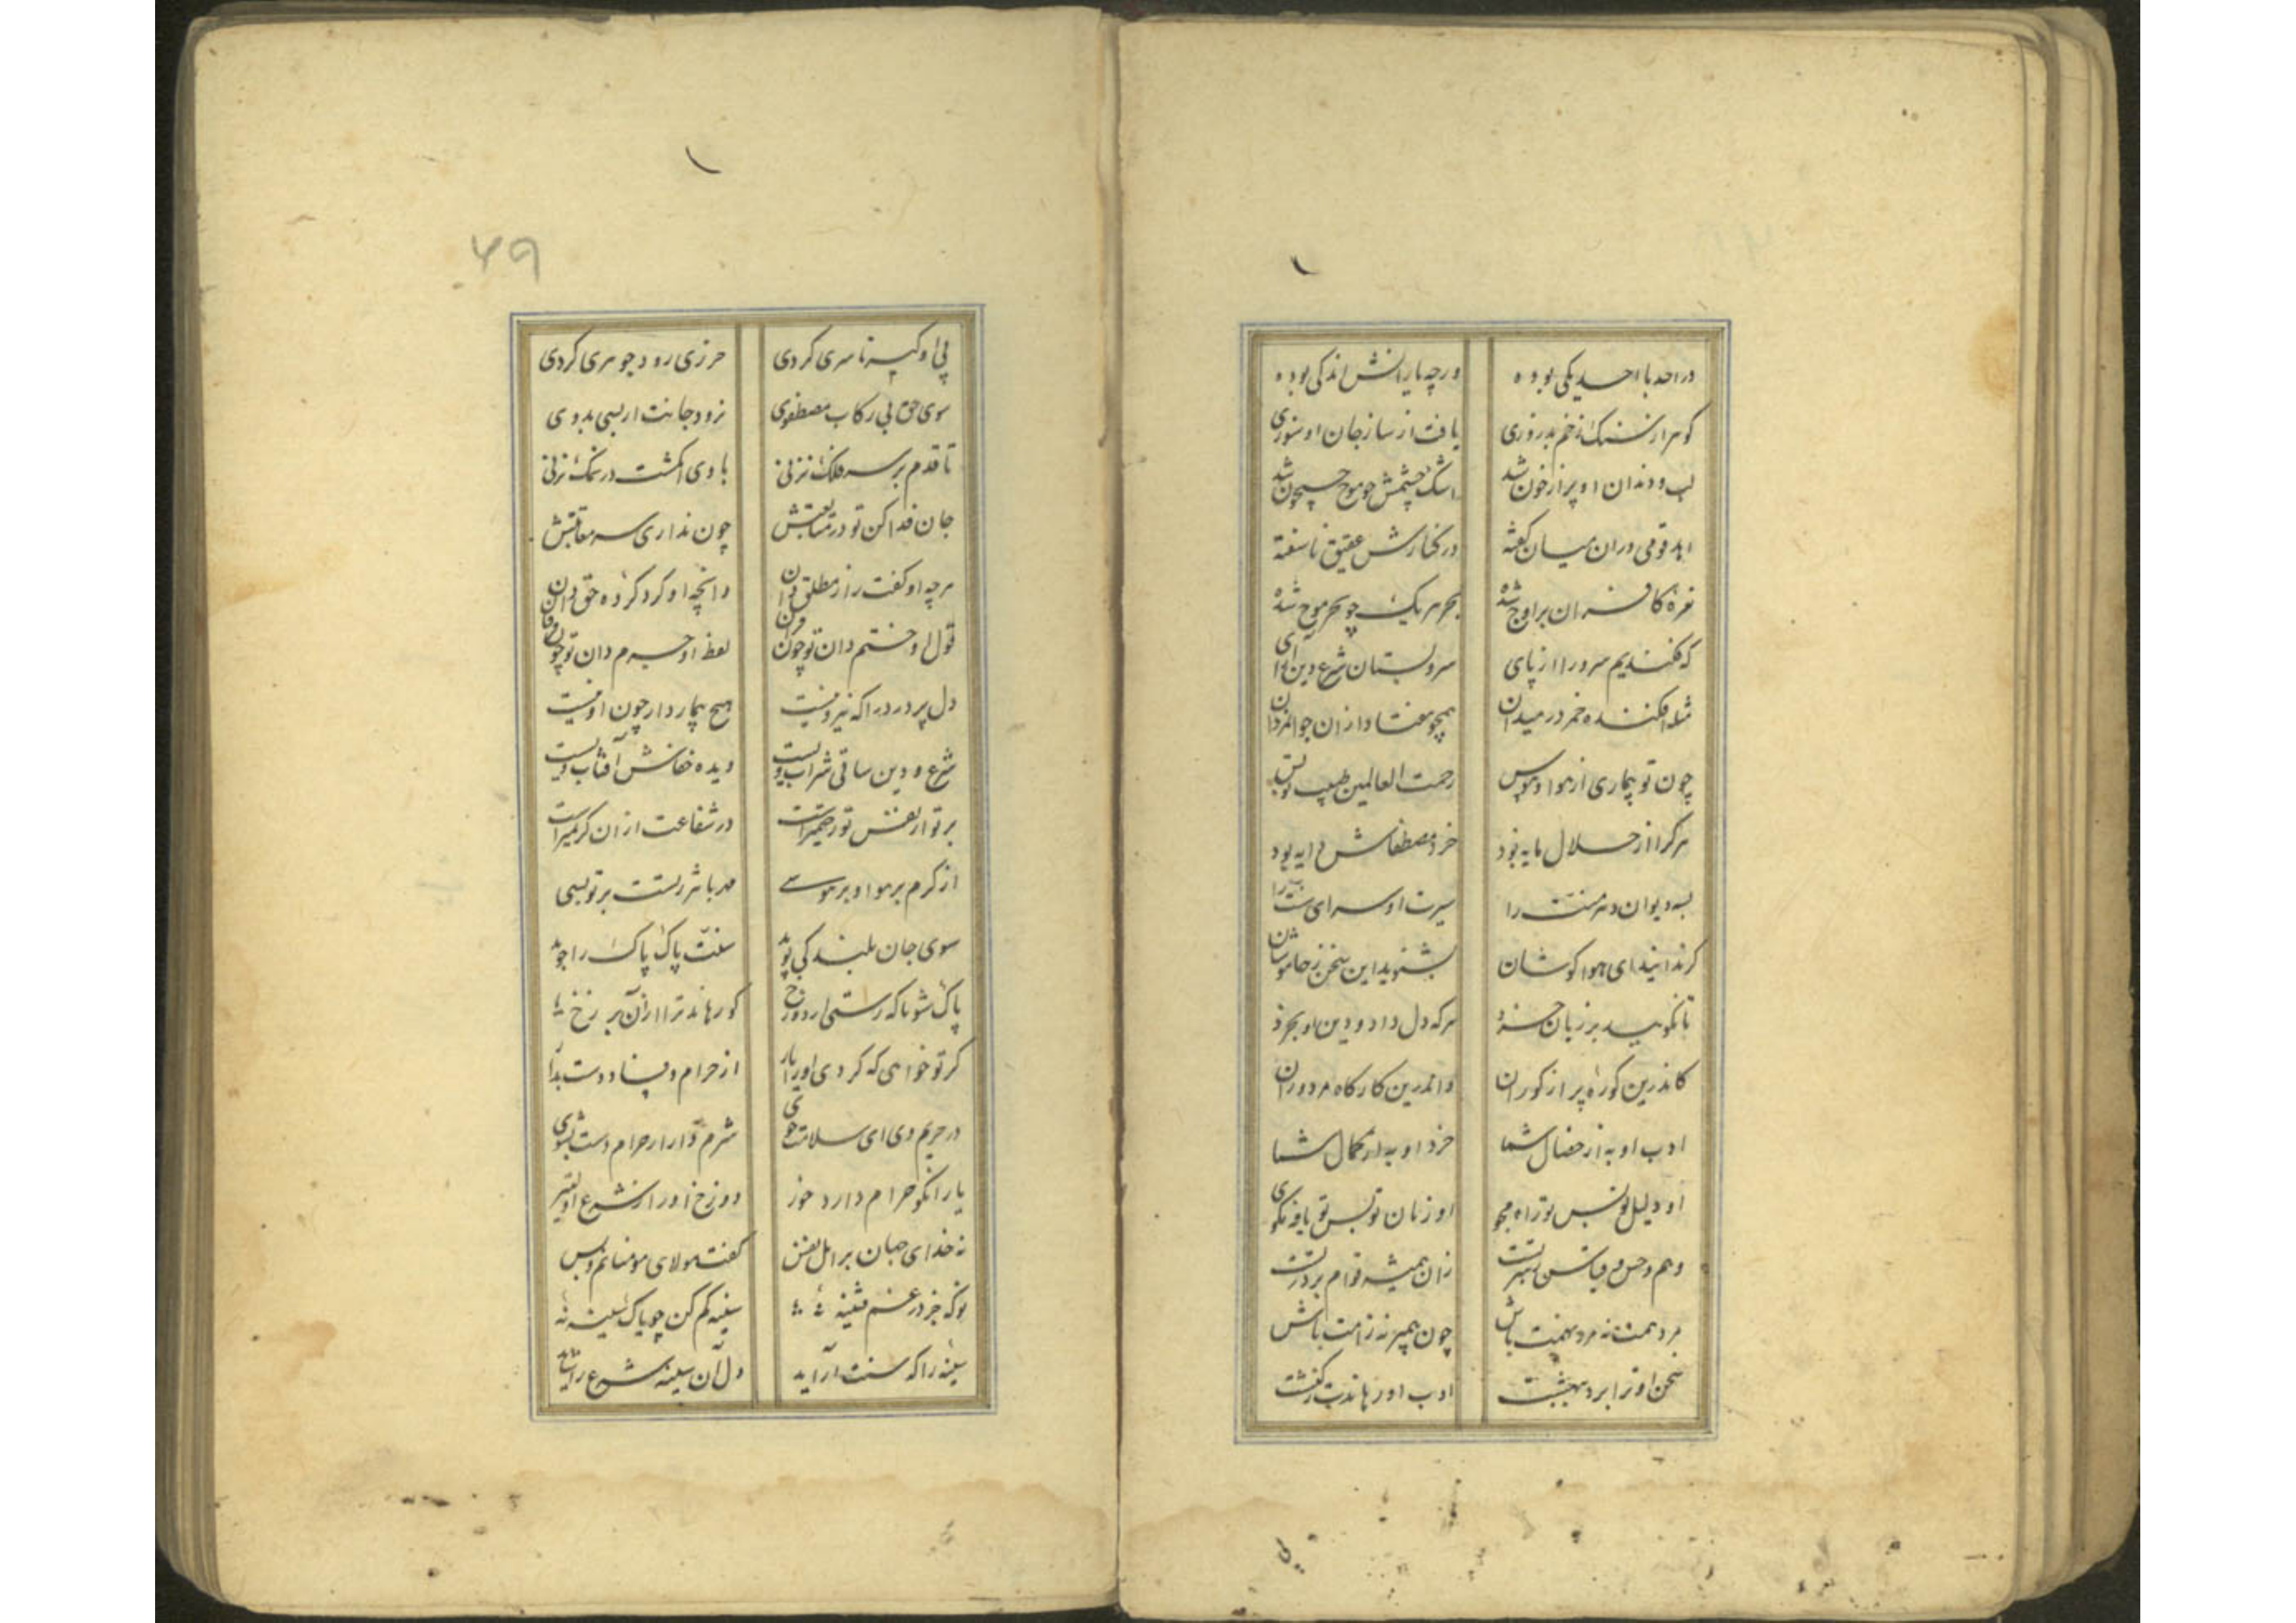 در احد با احد یکی بوده
ورچه یارانش اندکی بوده
گوهر از سنک زخم بدروزی
یافت از ساز جان او سوزی
لب و دندان او پر از خون شد
اشک چشمش چو موج جیحون شد
اهد قومی دران میان گفته
در کنارش عقیق ناسفته
نعرهٔ کافران بر اوج شده
بحر هر یک چو بحر موج شده
که فکندیم سرو را از پای
سرو بستان شرع دین آرای
شد افکنده حمزه در میدان
همچو هفتاد ازان جوانمردان
چون تو بیماری از هوا و هوس
رحمت العالمین طبیب تو بس
هر کرا از حلال مایه بود
خرد مصطفاش دایه بود
سیرت او سرای سنت را
کرند اینید ای هوا کوشان
بشنوید این سخن ز خاموشان
تا نکوید بر زبان خرد
هر که دل داد و دین او بخرد
کاندرین کوزه پر از کوران
واندرین کارگاه مزدوران
ادب او به از خصال شما
خرد او به از کمال شما
او دلیل تو بس تو راه مجوی
او زبان تو بس تو یاوه مگوی
وهم و حس و قیاس رهبر تست
زان همیشه قوام بر در تست
مرد همت نه مرد نهمت باش
چون پیمبر نه ز امت باش
سخن او ترا برد به بهشت
ادب او رهاندت ز کنشت
۴۹
پی او کیسه تا سری کردی
هرزی رو د جوهری کردی
سوی حق بی رکاب مصطفوی
نرود جانت ار بسی بدوی
تا قدم بر سر فلک نزنی
با وی انگشت در نمک نزنی
جان فدا کن تو در متابعتش
چون نداری سر معاقبتش
هرچه او گفت راز مطلق دان
وانچه او کرد کردهٔ حق دان
قول او ختم دان تو چون قرآن
لفظ او جزم دان تو چون فرقان
دل پر درد را که نیرو نیست
هیچ بیماردار چون او نیست
شرع و دین ساقی شراب ویست
دیده خفاش آفتاب ویست
بر تو از نفس تو رحیم‌تر است
در شفاعت ازان کریم‌تر است
از کرم بر هوا و بر هوسی
مهربانتر ز تست بر تو بسی
سوی جان پلید کی پوید
سنت پاک پاک را جوید
پاک شو تا که رستی از دوزخ
کو رهاند ترا ازان برزخ
گر تو خواهی که گردی او را یار
از حرام و فساد دست بدار
در حریم وی ای سلامت جوی
شرم دار از حرام دست بشوی
یار آنکو حرام دارد خوز
نه خدای جهان بر اهل نفس
گفت مولای مومنانم و بس
تو که جز در غم قنینه نهٔ
سینه گم کن چو پاک سینه نهٔ
سینهٔ را که سنت آراید
دل آن سینه شرع را شاید